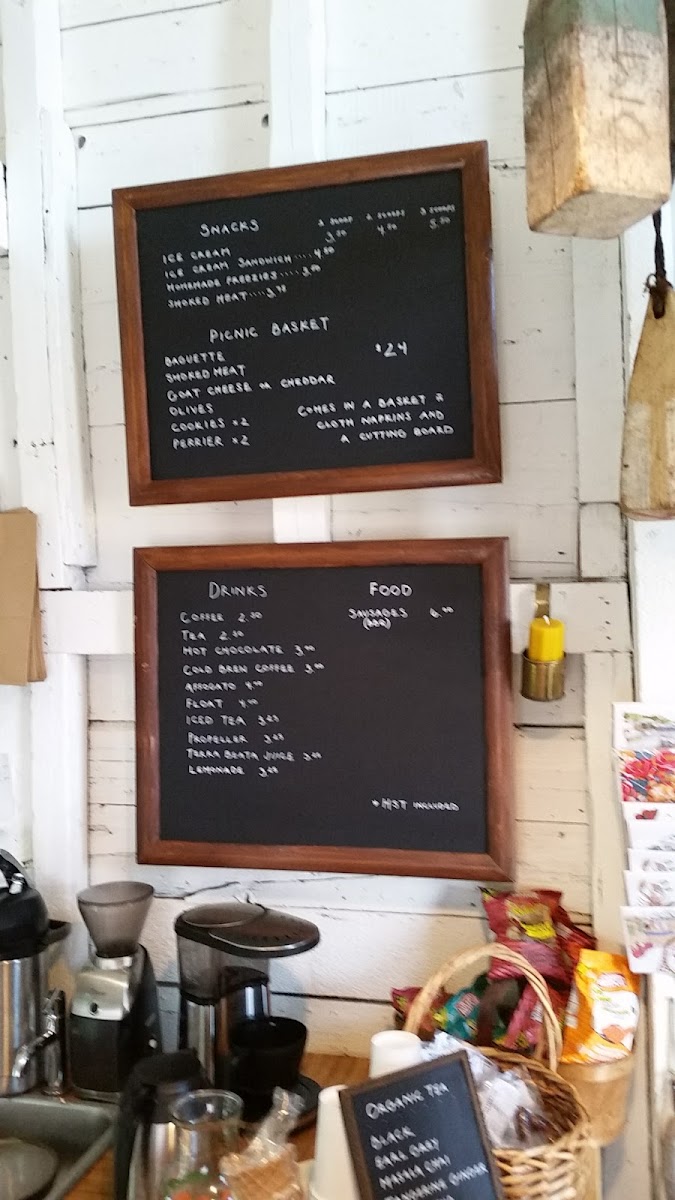 SNACKS
1 SCOOP 2 SCOOPS 3 SCOOPS
ICE CREAM 3.50 4.50 5.50
ICE CREAM SANDWICH .... 4.50
HOMEMADE FREEZIES .... 3.00
SMOKED MEAT .... 3.75
PICNIC BASKET
BAGUETTE $24
SMOKED MEAT
GOAT CHEESE OR CHEDDAR
OLIVES
COOKIES x2
PERRIER x2
COMES IN A BASKET &
CLOTH NAPKINS AND
A CUTTING BOARD
DRINKS
COFFEE 2.50
TEA 2.50
HOT CHOCOLATE 3.00
COLD BREW COFFEE 3.00
AFFOGATO 4.00
FLOAT 4.00
ICED TEA 3.25
PROPELLER 3.25
TERRA BEATA JUICE 3.25
LEMONADE 3.25
FOOD
SAUSAGES 6.00
(BBQ)
* HST INCLUDED
ORGANIC TEA
BLACK
EARL GREY
MASALA CHAI
TANGERINE GINGER